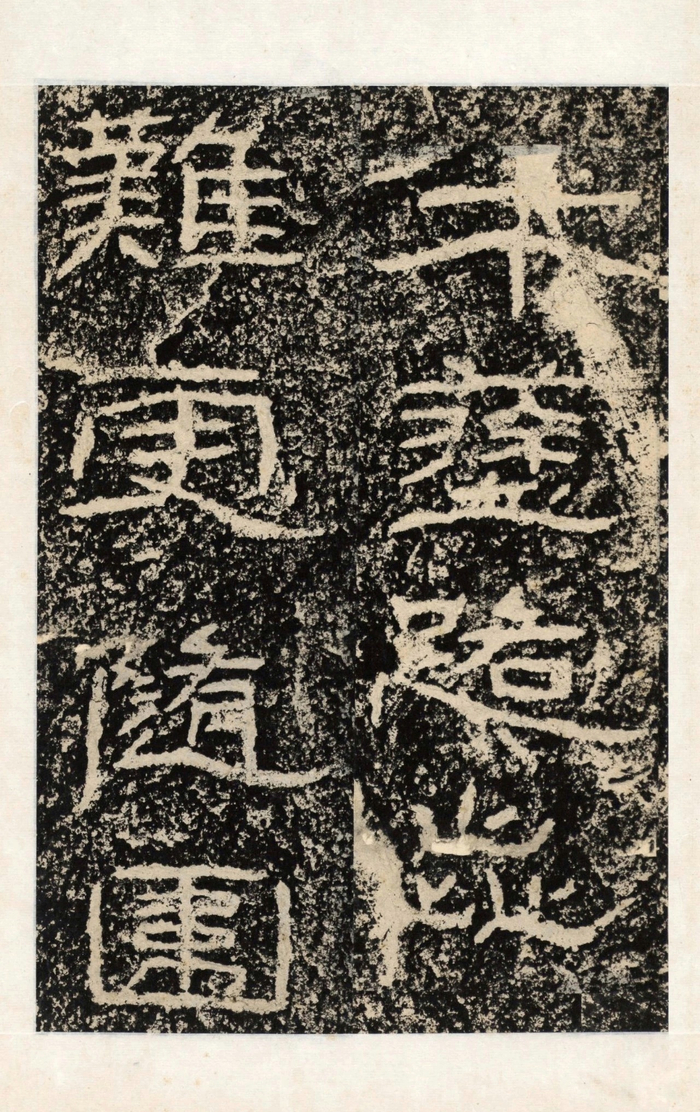 午塗路歰
難更隨圍